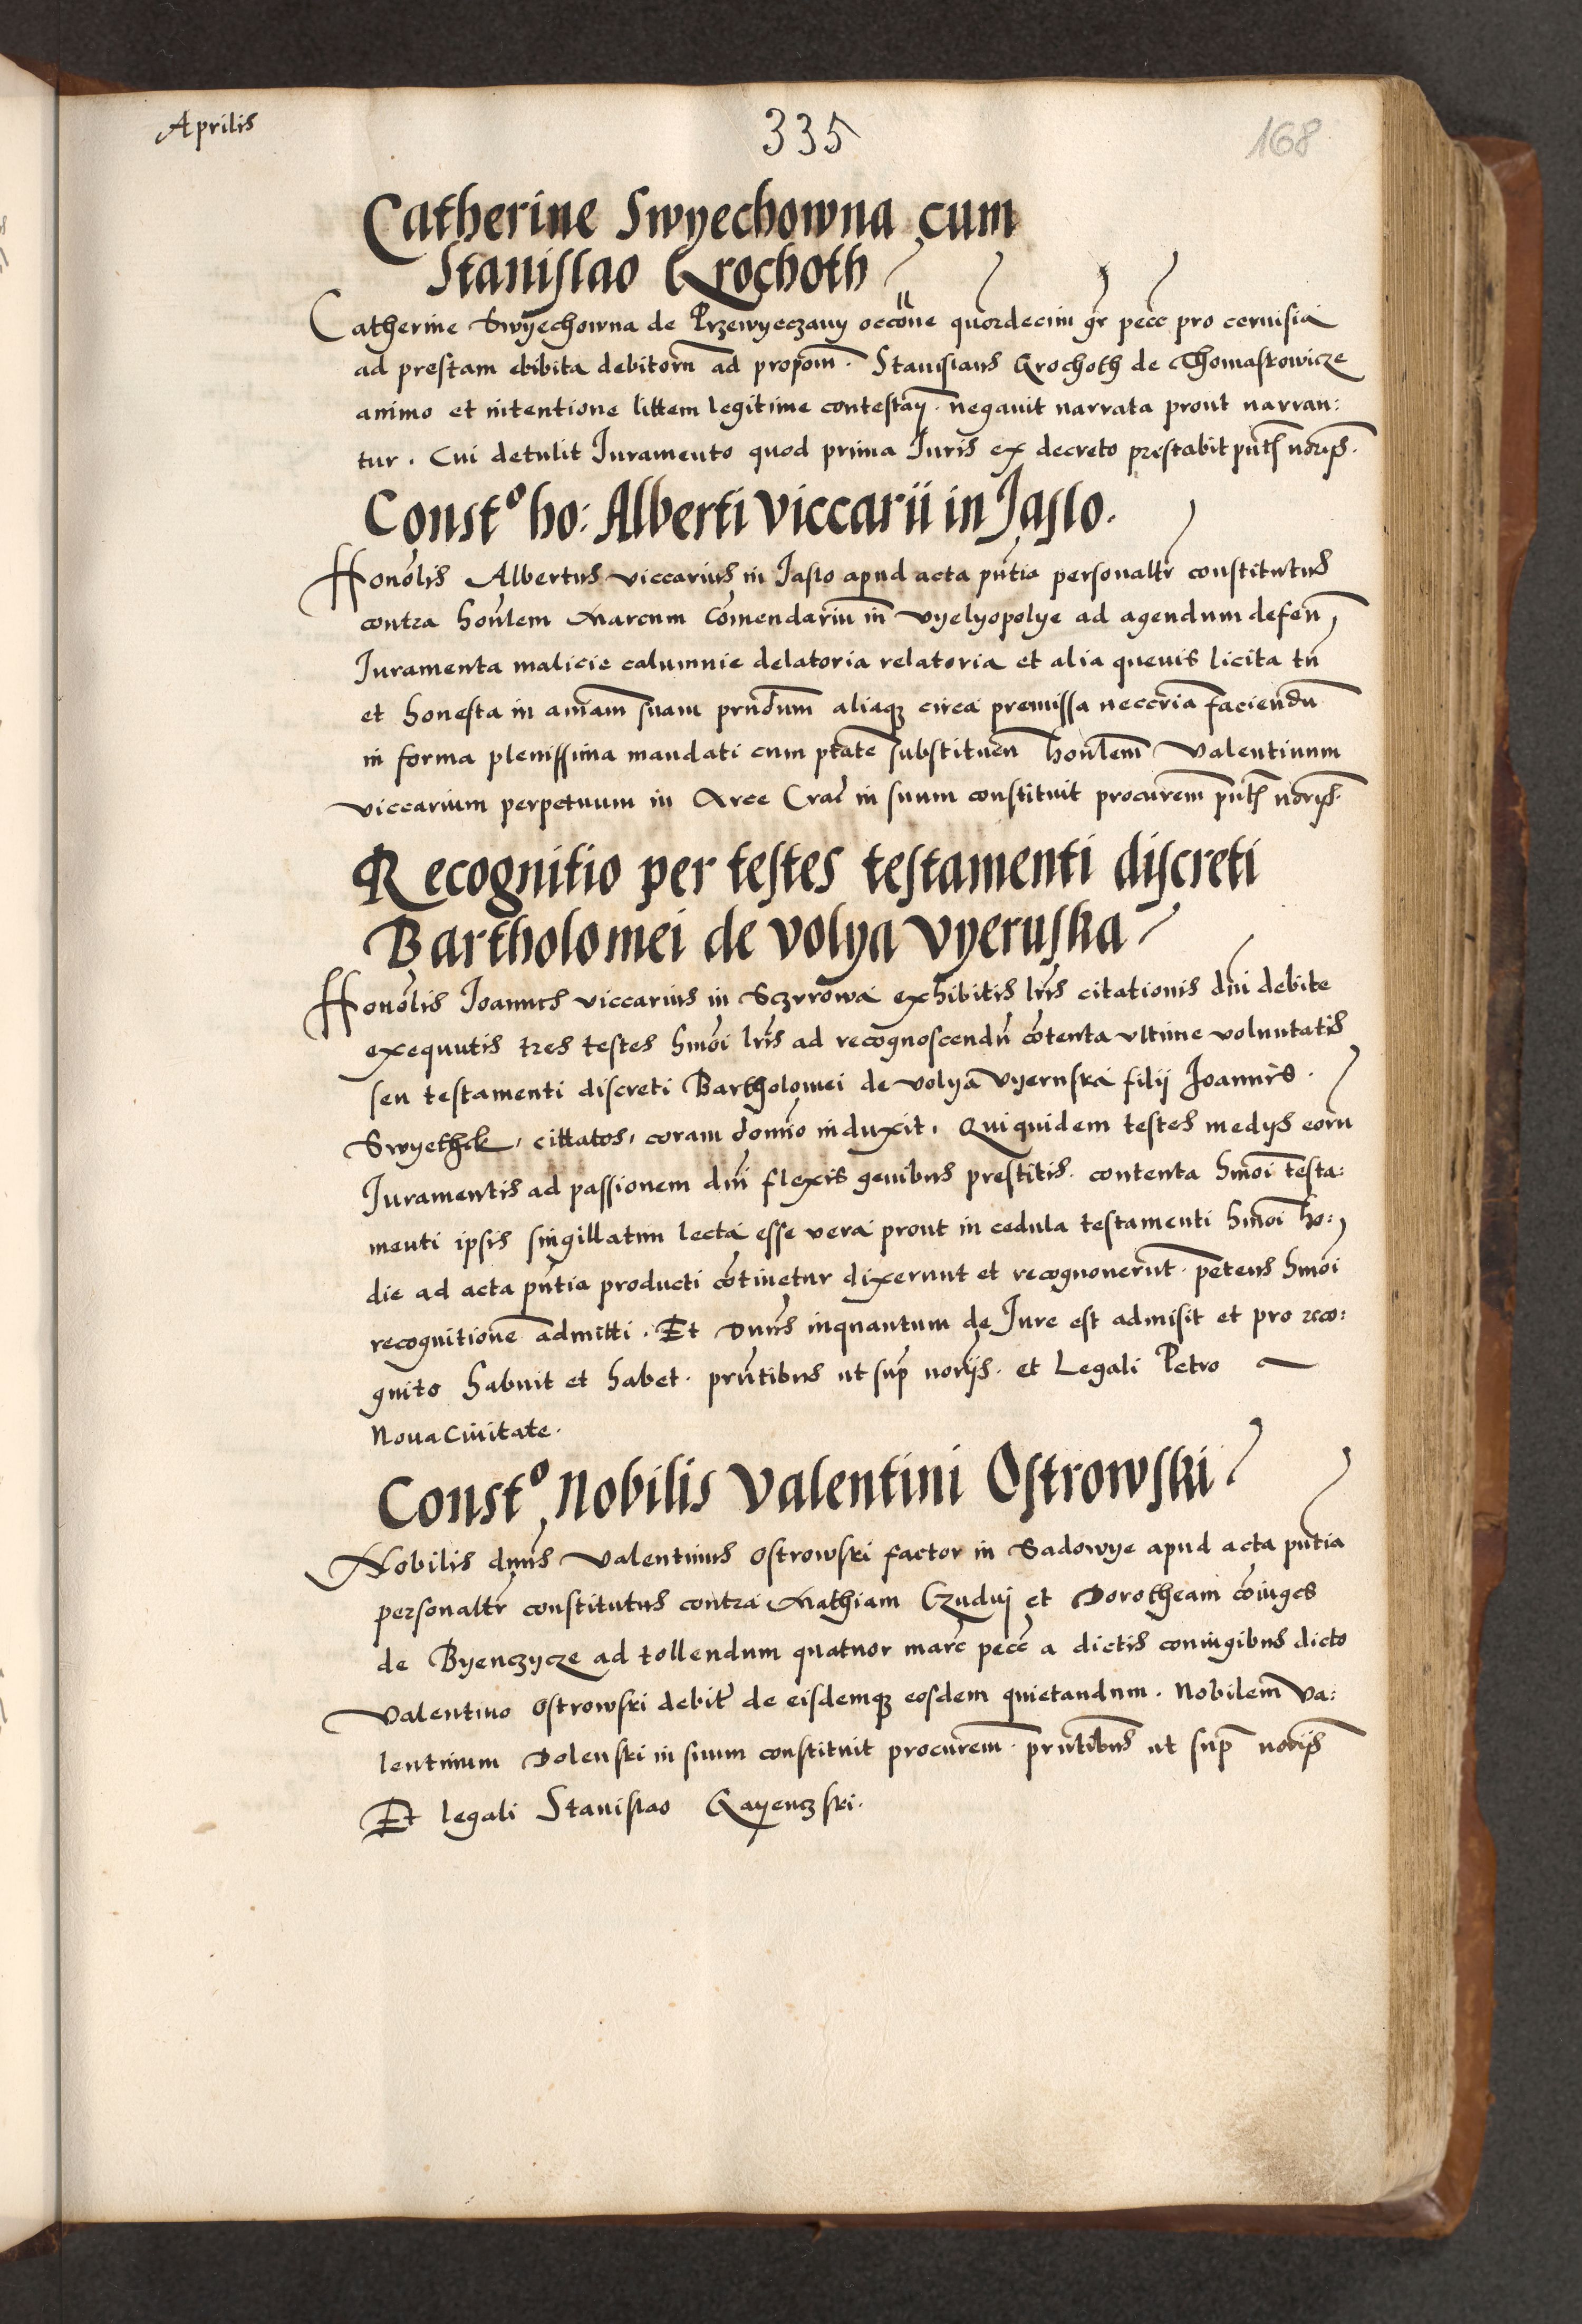 Aprilis
335
168
Catherine Swyechowna cum
Stanislao Grochoth
Catherine Swyechowna de Przewyeczany occõne quordecim gr pecc pro ceruisia
ad prestam ebibita debitorn ad propom. Stanislaus Grochoth de Thomaskowicze
animo et intentione littem legitime contestan. negauit narrata prout narran:
tur. Cui detulit Iuramento quod prima Iuris ex decreto prestabit pntb norijs.
Const° ho: Alberti viccarii in Jaslo.
Honolis Albertus viccarius in Jaslo apud acta pntia personaltr constitutus
contra honlem Marcum Comendariu in vyelyopolye ad agendum defen
Iuramenta malicie calumnie delatoria relatoria et alia queuis licita tn
et honesta in animam suam prndum aliaqz circa premissa neccria faciendu
in forma plenissima mandati cum ptate substituen honlem Valentinum
viccarium perpetuum in Arce Crac in suum constituit procurem pntb norijs.
Recognitio per testes testamenti discreti
Bartholomei de volya vyeruska
Honolis Joannes viccarius in Sczrrowa exhibitis lris citationis dni debite
exequutis tres testes hmoi lris ad recognoscendu cotenta vltime voluntatis
seu testamenti discreti Bartholomei de volya vyeruska filij Joannis.
Swyethek, cittatos, coram domno induxit. Qui quidem testes medijs eoru
Iuramentis ad passionem dni flexis genibus prestitis. contenta hmoi testa:
menti ipsis singillatim lecta esse vera prout in cedula testamenti hmoi ho:
die ad acta pntia producti cotinetur dixerunt et recognouerut. petens hmoi
recognitione admitti. Et Dnus inquantum de Iure est admisit et pro reco:
gnito habuit et habet. prntibus ut sup norijs. et Legali Petro
Noua Ciuitate.
Const° Nobilis Valentini Ostrowski
Nobilis dnus Valentinus Ostrowski factor in Sadowye apud acta pntia
personaltr constitutus contra Mathiam Czuduj et Dorotheam coiuges
de Byenczycze ad tollendum quatuor marc pecc a dictis coniugibus dicto
Valentino Ostrowski debit de eisdemqz eosdem quietandum. Nobilem Va:
lentinum Dolenski in suum constituit procurem. prntibus ut sup norijs
Et legali Stanislao Gayenczski.